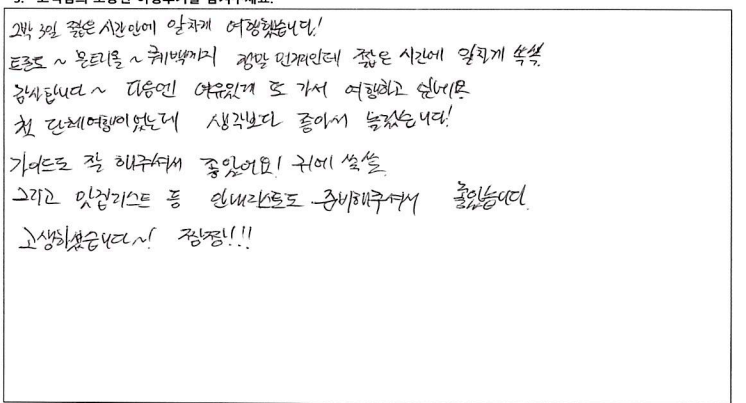 2박 3일 짧은 시간안에 알차게 여행했습니다!
토론토 ~ 몬트리올 ~ 퀘백까지 정말 먼거리인데 짧은 시간에 알차게 쏙쏙
감사합니다 ~ 다음엔 여유있게 또 가서 여행하고 싶네요
첫 단체여행이었는데 생각보다 좋아서 놀랐습니다!
가이드도 잘 해주셔서 좋았어요! 귀에 쏙쏙
그리고 맛집리스트 등 안내리스트도 준비해주셔서 좋았습니다.
고생하셨습니다~! 짱짱!!!